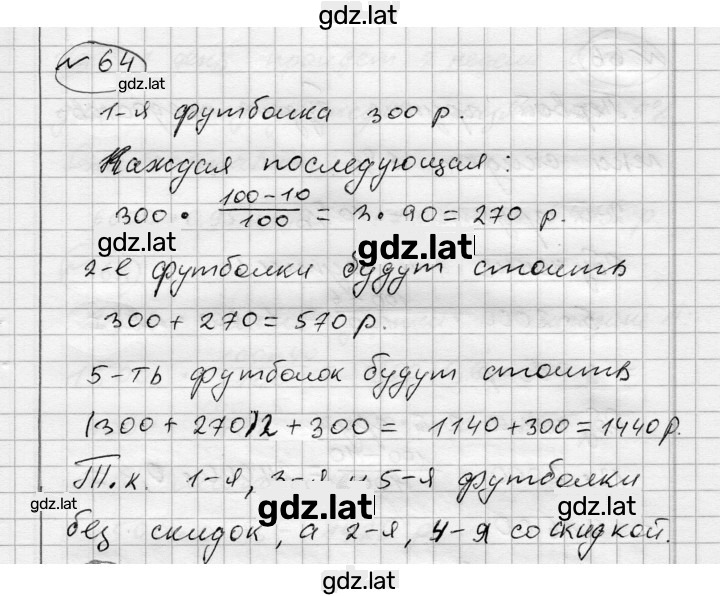 gdz.lat
№ 64
gdz.lat
1-я футболка 300 р.
Каждая последующая:
300 · (100-10)/100 = 3 · 90 = 270 р.
gdz.lat
gdz.lat
2-е футболки будут стоить
300 + 270 = 570 р.
5-ть футболок будут стоить
(300 + 270)2 + 300 = 1140 + 300 = 1440 р.
Т.к. 1-я, 3-я и 5-я футболки
gdz.lat
gdz.lat
gdz.lat
без скидок, а 2-я, 4-я со скидкой.
gdz.lat